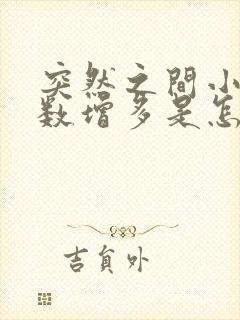 突然之間小
数增多是怎
吉貟外